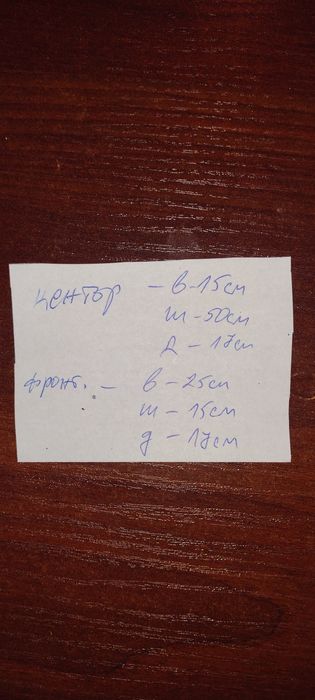 центор - в-15см
ш-50см
д-17см
фронт. - в-25см
ш-15см
д-17см